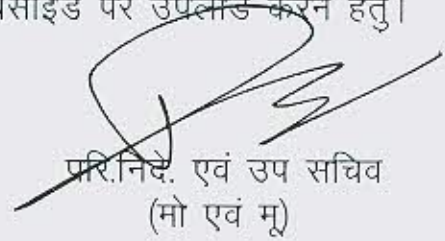 पर उपलोड करने हेतु।
परि.निदे. एवं उप सचिव
(मो एवं मू)